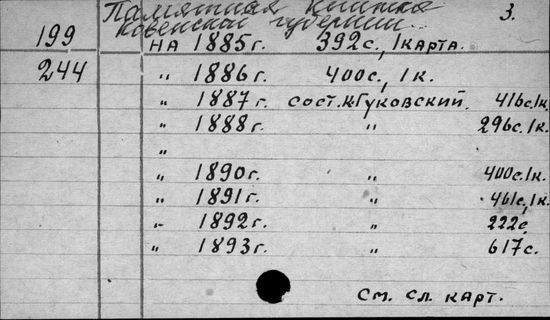 Памятная книжка 3.
Ковенской губернии...
199 НА 1885г. 392с., 1 карта.
244 " 1886г. 400с., 1 к.
" 1887г. сост. К. Гуковский. 416с. 1к.
" 1888г. " 296с. 1к.
"
" 1890г. " 400с. 1к.
" 1891г. " 461с, 1к.
" 1892г. " 222с.
" 1893г. " 617с.
См. сл. карт.